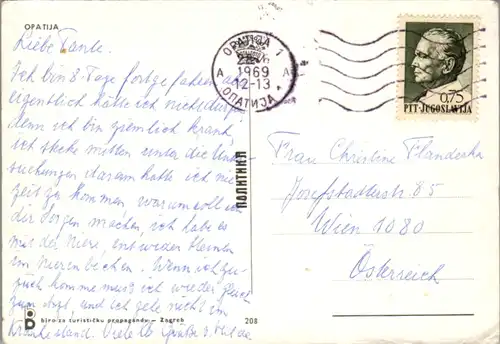 OPATIJA
Liebe Tante.
Ich bin 8 Tage fortgefahren
eigentlich hätte ich nicht dürfen
denn ich bin ziemlich krank
ich stecke mitten unter die Unter
suchungen darum hatte ich nie
Zeit zu kommen warum soll ich
dir Sorgen machen, ich habe es
mit der Niere, entweder Steine
im Nierenbecken. Wenn ich zu-
rück komme muss ich wieder gleich
zum Arzt und ich gehe nicht ins
Krankenhaus. Viele lb Grüße v. Hilde
biro za turističku propagandu — Zagreb
208
POLITIKIN
OPATIJA 1
A 1969 A
12-13
ОПАТИЈА
0,75
PTT-JUGOSLAVIJA
Frau Christine Flanderka
Josefstadterstr 85
Wien 1080
Österreich